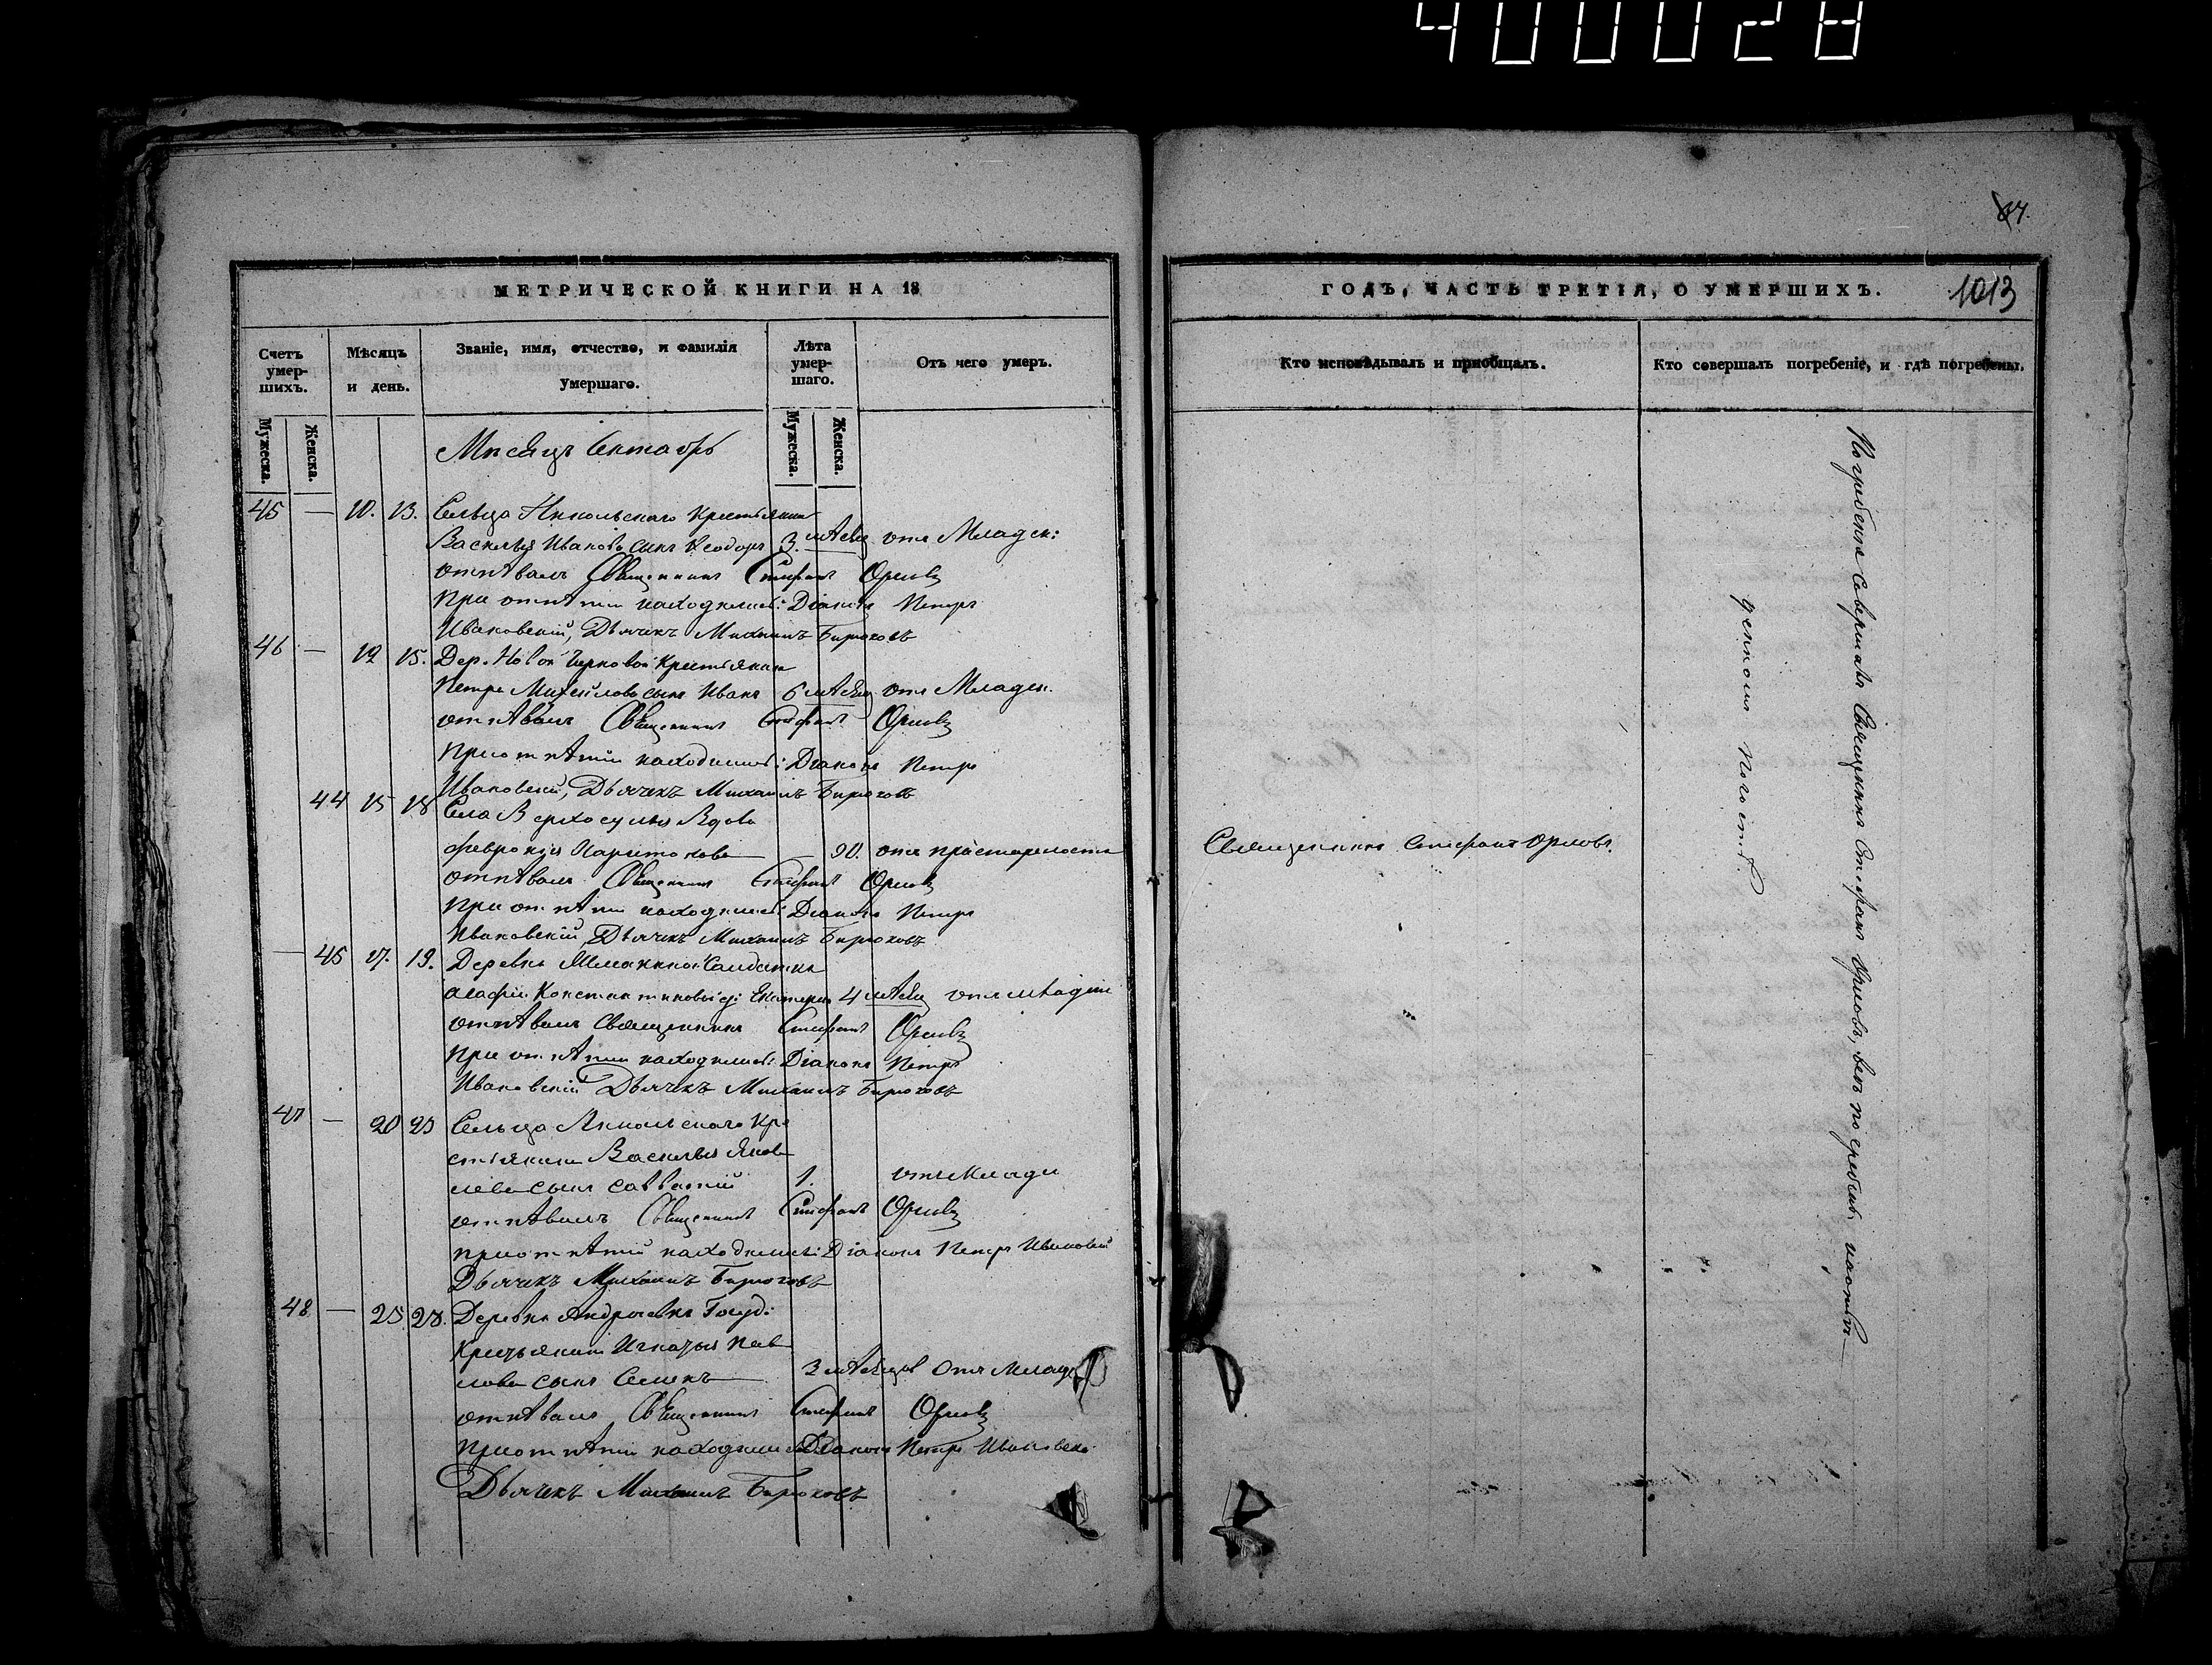 400028
МЕТРИЧЕСКОЙ КНИГИ НА 18
Счетъ умер-шихъ.
Мужеска.
Женска.
Мѣсяцъ и день.
Званіе, имя, отчество, и фамилія умершаго.
Лѣта умер-шаго.
Мужеска.
Женска.
Отъ чего умеръ.
45 — 10. 13. Сельца Никольскаго Крестьянина
Василья Иванова сынъ Ѳеодоръ 3. мѣсяц отъ Младен:
отпѣвалъ Священникъ Стефанъ Орловъ
При отпѣтіи находились: Діаконъ Петръ
Ивановскій, Дьячекъ Михаилъ Бирюковъ
46 — 12 15. Дер. Новой Крестьянин
Петра Михайлова сынъ Иванъ 6 мѣсяц отъ Младен.
отпѣвалъ Священникъ Стефанъ Орловъ
При отпѣтіи находились: Діаконъ Петръ
Ивановскій, Дьячекъ Михаилъ Бирюковъ
44 15 18 Села Верхосулья Вдова
Феврония Харитонова — 90. отъ престарелости
отпѣвалъ Священникъ Стефанъ Орловъ
При отпѣтіи находились: Діаконъ Петръ
Ивановскій, Дьячекъ Михаилъ Бирюковъ
— 45 17. 19. Деревни Солдатки
Агафіи Константиновы д: Екатерина 4 мѣсяц отъ младен
отпѣвалъ Священникъ Стефанъ Орловъ
При отпѣтіи находились: Діаконъ Петръ
Ивановскій Дьячекъ Михаилъ Бирюковъ
47 — 20 23 Сельца Никольскаго Кре
стьянина Василья Яков
лева сынъ Савватій 1. отъ Млади
отпѣвалъ Священникъ Стефанъ Орловъ
При отпѣтіи находились: Діаконъ Петръ Ивановскій
Дьячекъ Михаилъ Бирюковъ
48. — 25. 28. Деревни Андреевки Госуд:
Крестьянина Игнатья Пав
лова сынъ Семенъ 3 мѣсяцов Отъ Млад
отпѣвалъ Священникъ Стефанъ Орловъ
При отпѣтіи находились Діаконъ Петръ Ивановски
Дьячекъ Михаилъ Бирюковъ
ГОДЪ, ЧАСТЬ ТРЕТІЯ, О УМЕРШИХЪ.
1013
Кто исповѣдывалъ и пріобщалъ.
Кто совершалъ погребеніе, и гдѣ погребены.
Священникъ Стефанъ Орловъ.
Погребеніе совершалъ Священникъ Стефанъ Орловъ, всѣ погребены на отве
денномъ погостѣ